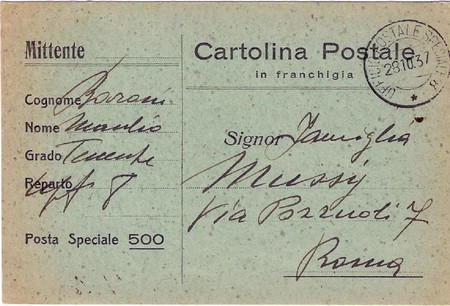 Mittente
Cognome Barani
Nome Manlio
Grado Tenente
Reparto 8
Posta Speciale 500
Cartolina Postale
in franchigia
UFFICIO POSTALE SPECIALE 8
28.10.37
Signor Famiglia
Mussi
Via Pozzuoli 7
Roma